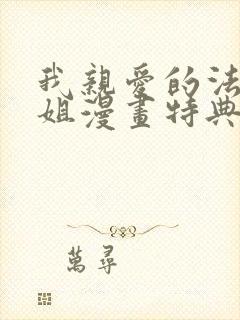 我親愛的法
姐漫畫特典
萬尋